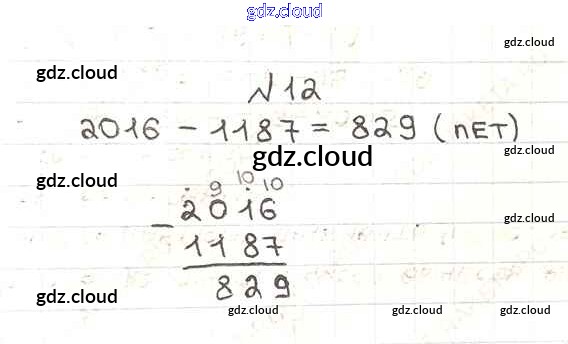 gdz.cloud
gdz.cloud
gdz.cloud
gdz.cloud
№12
2016 - 1187 = 829 (лЕТ)
gdz.cloud
gdz.cloud
gdz.cloud
9 10 10
- 2016
gdz.cloud
1187
829
gdz.cloud
gdz.cloud
gdz.cloud